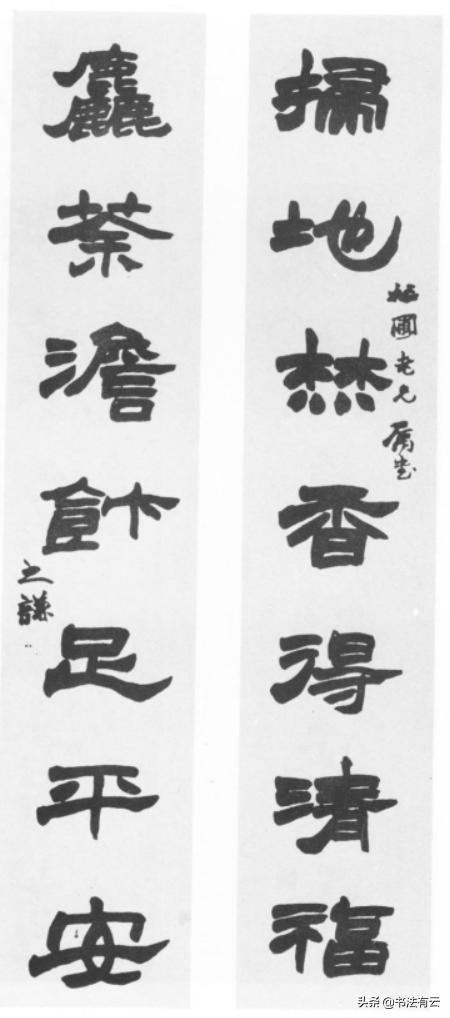 掃地焚香得清福
圃老兄屬書
麤茶澹飰足平安
之謙
头条 @书法有云